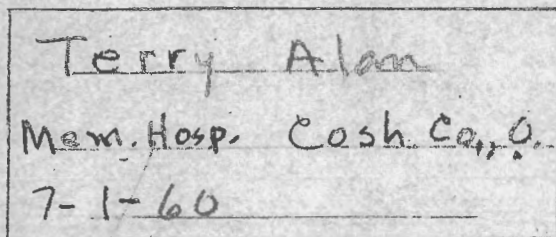 Terry Alan
Mem. Hosp. Cosh. Co., O.
7-1-60